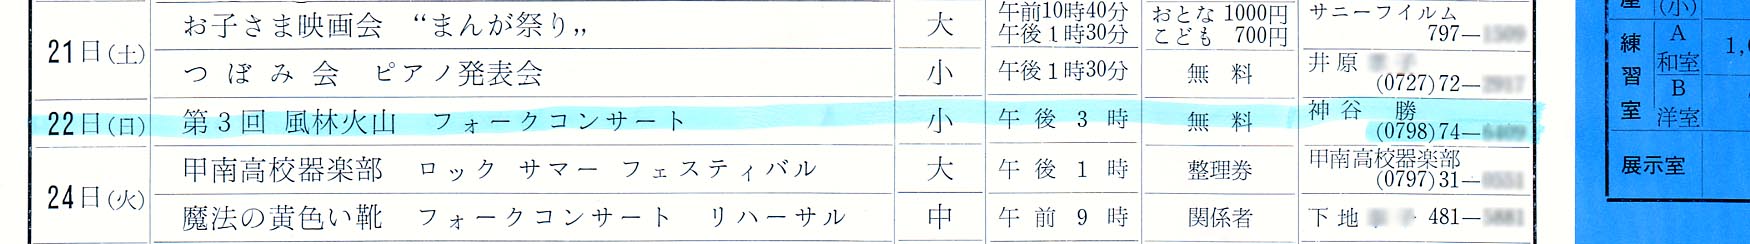 21日(土)
お子さま映画会 “まんが祭り„ 大 午前10時40分 午後1時30分 おとな 1000円 こども 700円 サニーフイルム 797—
つぼみ会 ピアノ発表会 小 午後1時30分 無料 井原 (0727)72—
22日(日) 第3回 風林火山 フォークコンサート 小 午後3時 無料 神谷 勝 (0798)74—
24日(火)
甲南高校器楽部 ロック サマー フェスティバル 大 午後1時 整理券 甲南高校器楽部 (0797)31—
魔法の黄色い靴 フォークコンサート リハーサル 中 午前9時 関係者 下地 481—
(小)
練習室
A 和室
B 洋室
1,
展示室